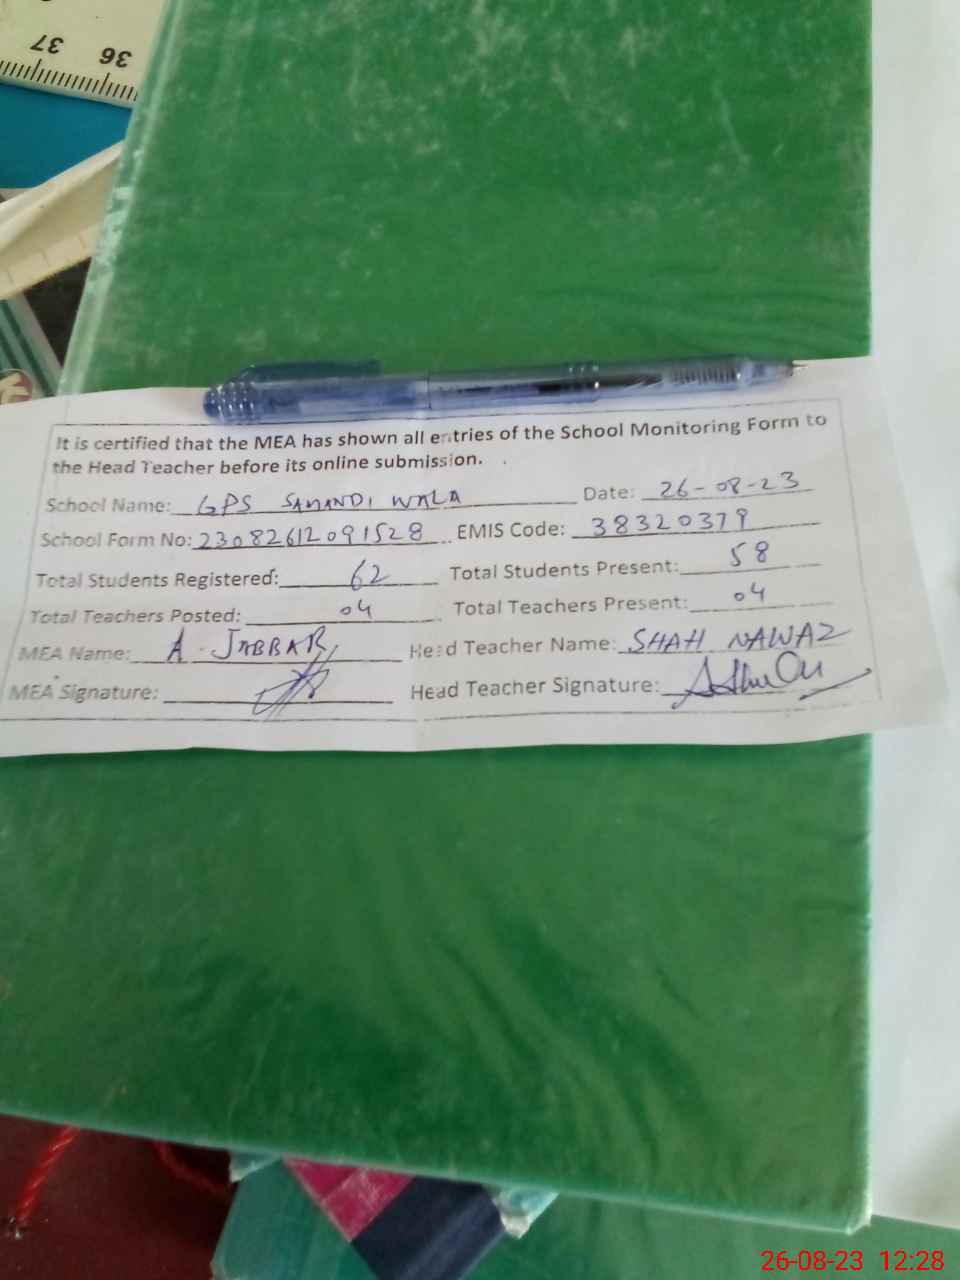 37 36
It is certified that the MEA has shown all entries of the School Monitoring Form to
the Head Teacher before its online submission.
School Name: GPS SAMANDI WALA Date: 26-08-23
School Form No: 23082612091528 EMIS Code: 38320379
Total Students Registered: 62 Total Students Present: 58
Total Teachers Posted: 04 Total Teachers Present: 04
MEA Name: A. JABBAR Head Teacher Name: SHAH NAWAZ
MEA Signature: Head Teacher Signature:
26-08-23 12:28